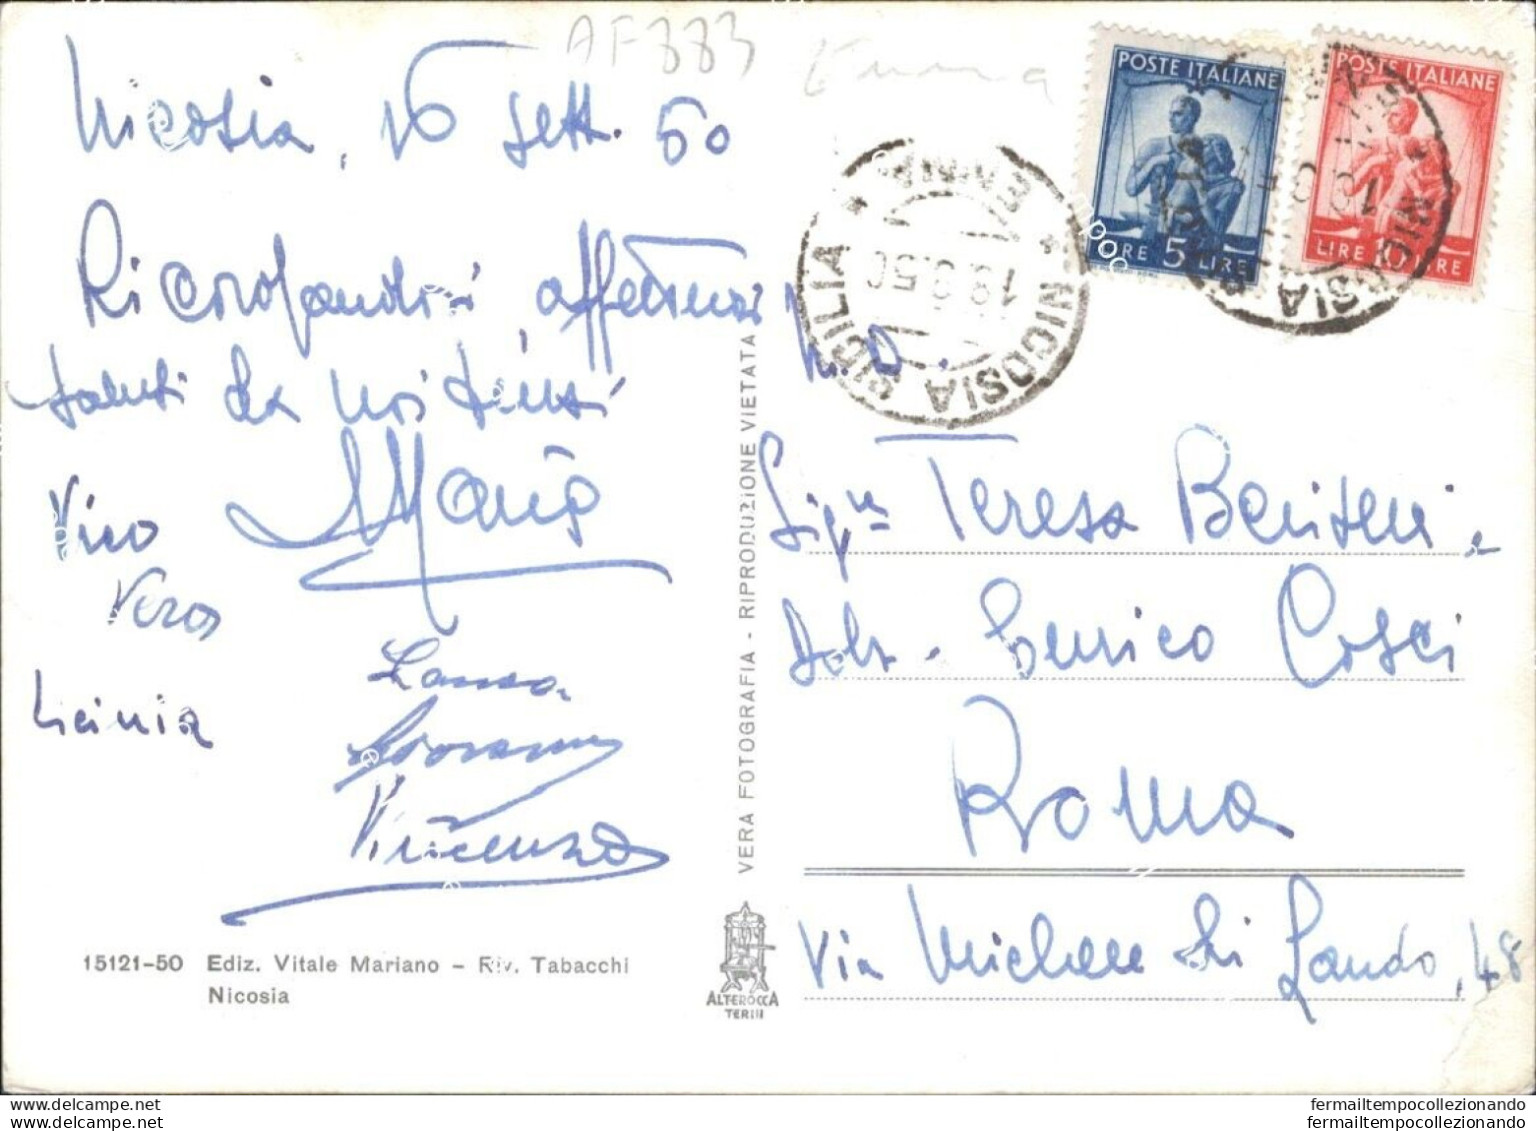 AF883
Enna
Nicosia, 16 sett. 50
Ricordandovi affettuosi
saluti da noi tutti
Maria
Vico
Vera
Licinia
Laura
Giovanni
Vincenza
15121-50 Ediz. Vitale Mariano - Riv. Tabacchi
Nicosia
VERA FOTOGRAFIA - RIPRODUZIONE VIETATA
ALTEROCCA
TERNI
POSTE ITALIANE
LIRE 5 LIRE
POSTE ITALIANE
LIRE LIRE
NICOSIA SICILIA
ENNA
18.9.50
N.D.
Sig.ra Teresa
Dott. Enrico Cosci
Roma
Via Michele di Lando, 48
www.delcampe.net
www.delcampe.net
fermailtempocollezionando
fermailtempocollezionando